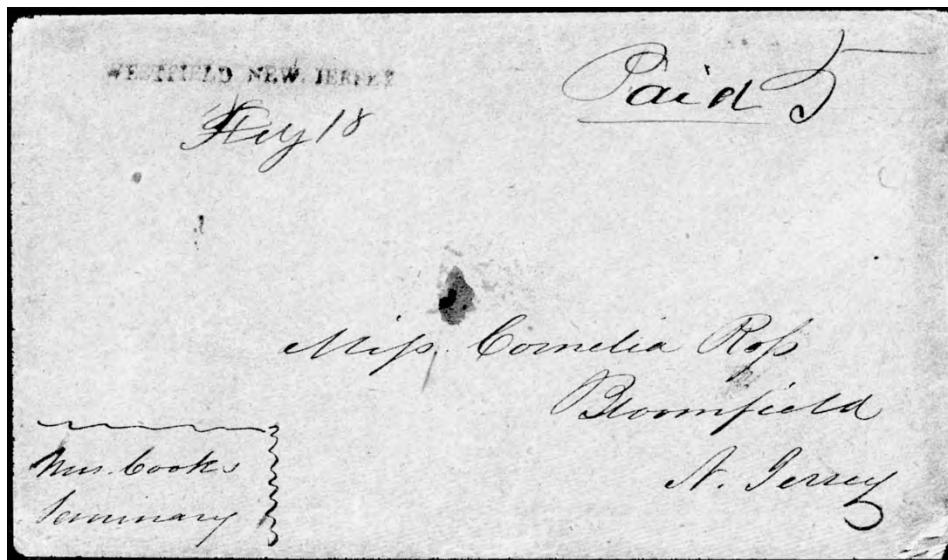 WESTFIELD NEW JERSEY
18
Paid 5
Miss. Cornelia Ross
Bloomfield
N. Jersey
Mrs. Cooks
Seminary